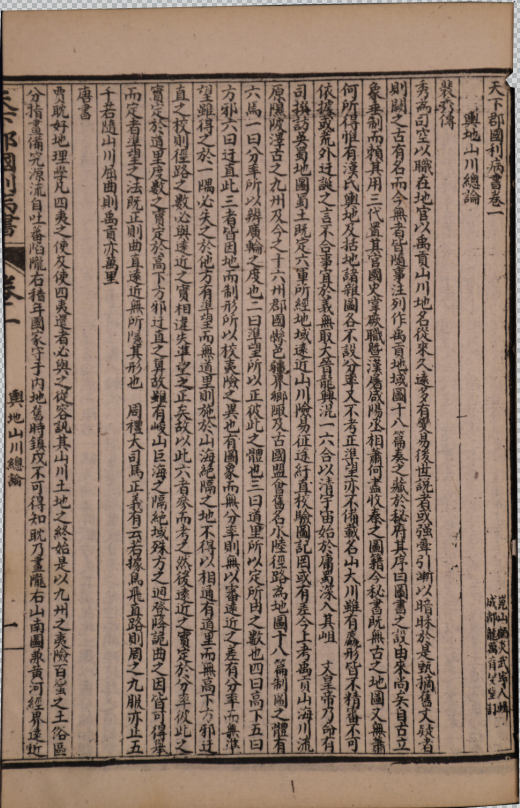 天下郡國利病書卷一
輿地山川總論
裴秀傳
秀為司空以職在地官以禹貢山川地名從來久遠多有變易後世說者或強牽引漸以暗昧於是甄摘舊文疑者
則闕之古有名而今無者皆隨事注列作禹貢地域圖十八篇奏之藏於秘府其序曰圖書之設由來尚矣自古立
象垂制而賴其用三代置其官國史掌厥職暨漢屠咸陽丞相蕭何盡收秦之圖籍今秘書既無古之地圖又無蕭
何所得惟有漢氏輿地及括地諸雜圖各不設分率又不考正準望亦不備載名山大川雖有麤形皆不精審不可
依據或荒外迂誕之言不合事實於義無取大晉龍興混一六合以清宇宙始於庸蜀罙入其岨 文皇帝乃命有
司撰訪吳蜀地圖蜀土既定六軍所經地域遠近山川險易征途紆直校驗圖記罔或有差今上考禹貢山海川流
原隰陂澤古之九州及今之十六州郡國縣邑疆界鄉陬及古國盟會舊名水陸徑路為地圖十八篇制圖之體有
六焉一曰分率所以辨廣輪之度也二曰準望所以正彼此之體也三曰道里所以定所由之數也四曰高下五曰
方邪六曰迂直此三者皆因地而制形所以校夷險之異也有圖象而無分率則無以審遠近之差有分率而無準
望雖得之於一隅必失之於他方有準望而無道里則施於山海絕隔之地不得以相通有道里而無高下方邪迂
直之校則徑路之數必與遠近之實相違失準望之正矣故以此六者參而考之然後遠近之實定於分率彼此之
實定於道里度數之實定於高下方邪迂直之算故雖有峻山巨海之隔絕域殊方之迥登降詭曲之因皆可得舉
而定者準望之法既正則曲直遠近無所隱其形也 周禮大司馬正義有云若據鳥飛直路則周之九服亦止五
千若隨山川屈曲則禹貢亦萬里
唐書
賈耽好地理學凡四夷之使及使四夷還者必與之從容訊其山川土地之終始是以九州之夷險百蠻之土俗區
分指畫備究源流自吐蕃陷隴右積年國家守于內地舊時鎮戍不可得知耽乃畫隴右山南圖兼黃河經界遠近
天下郡國利病書 卷一 輿地山川總論 一